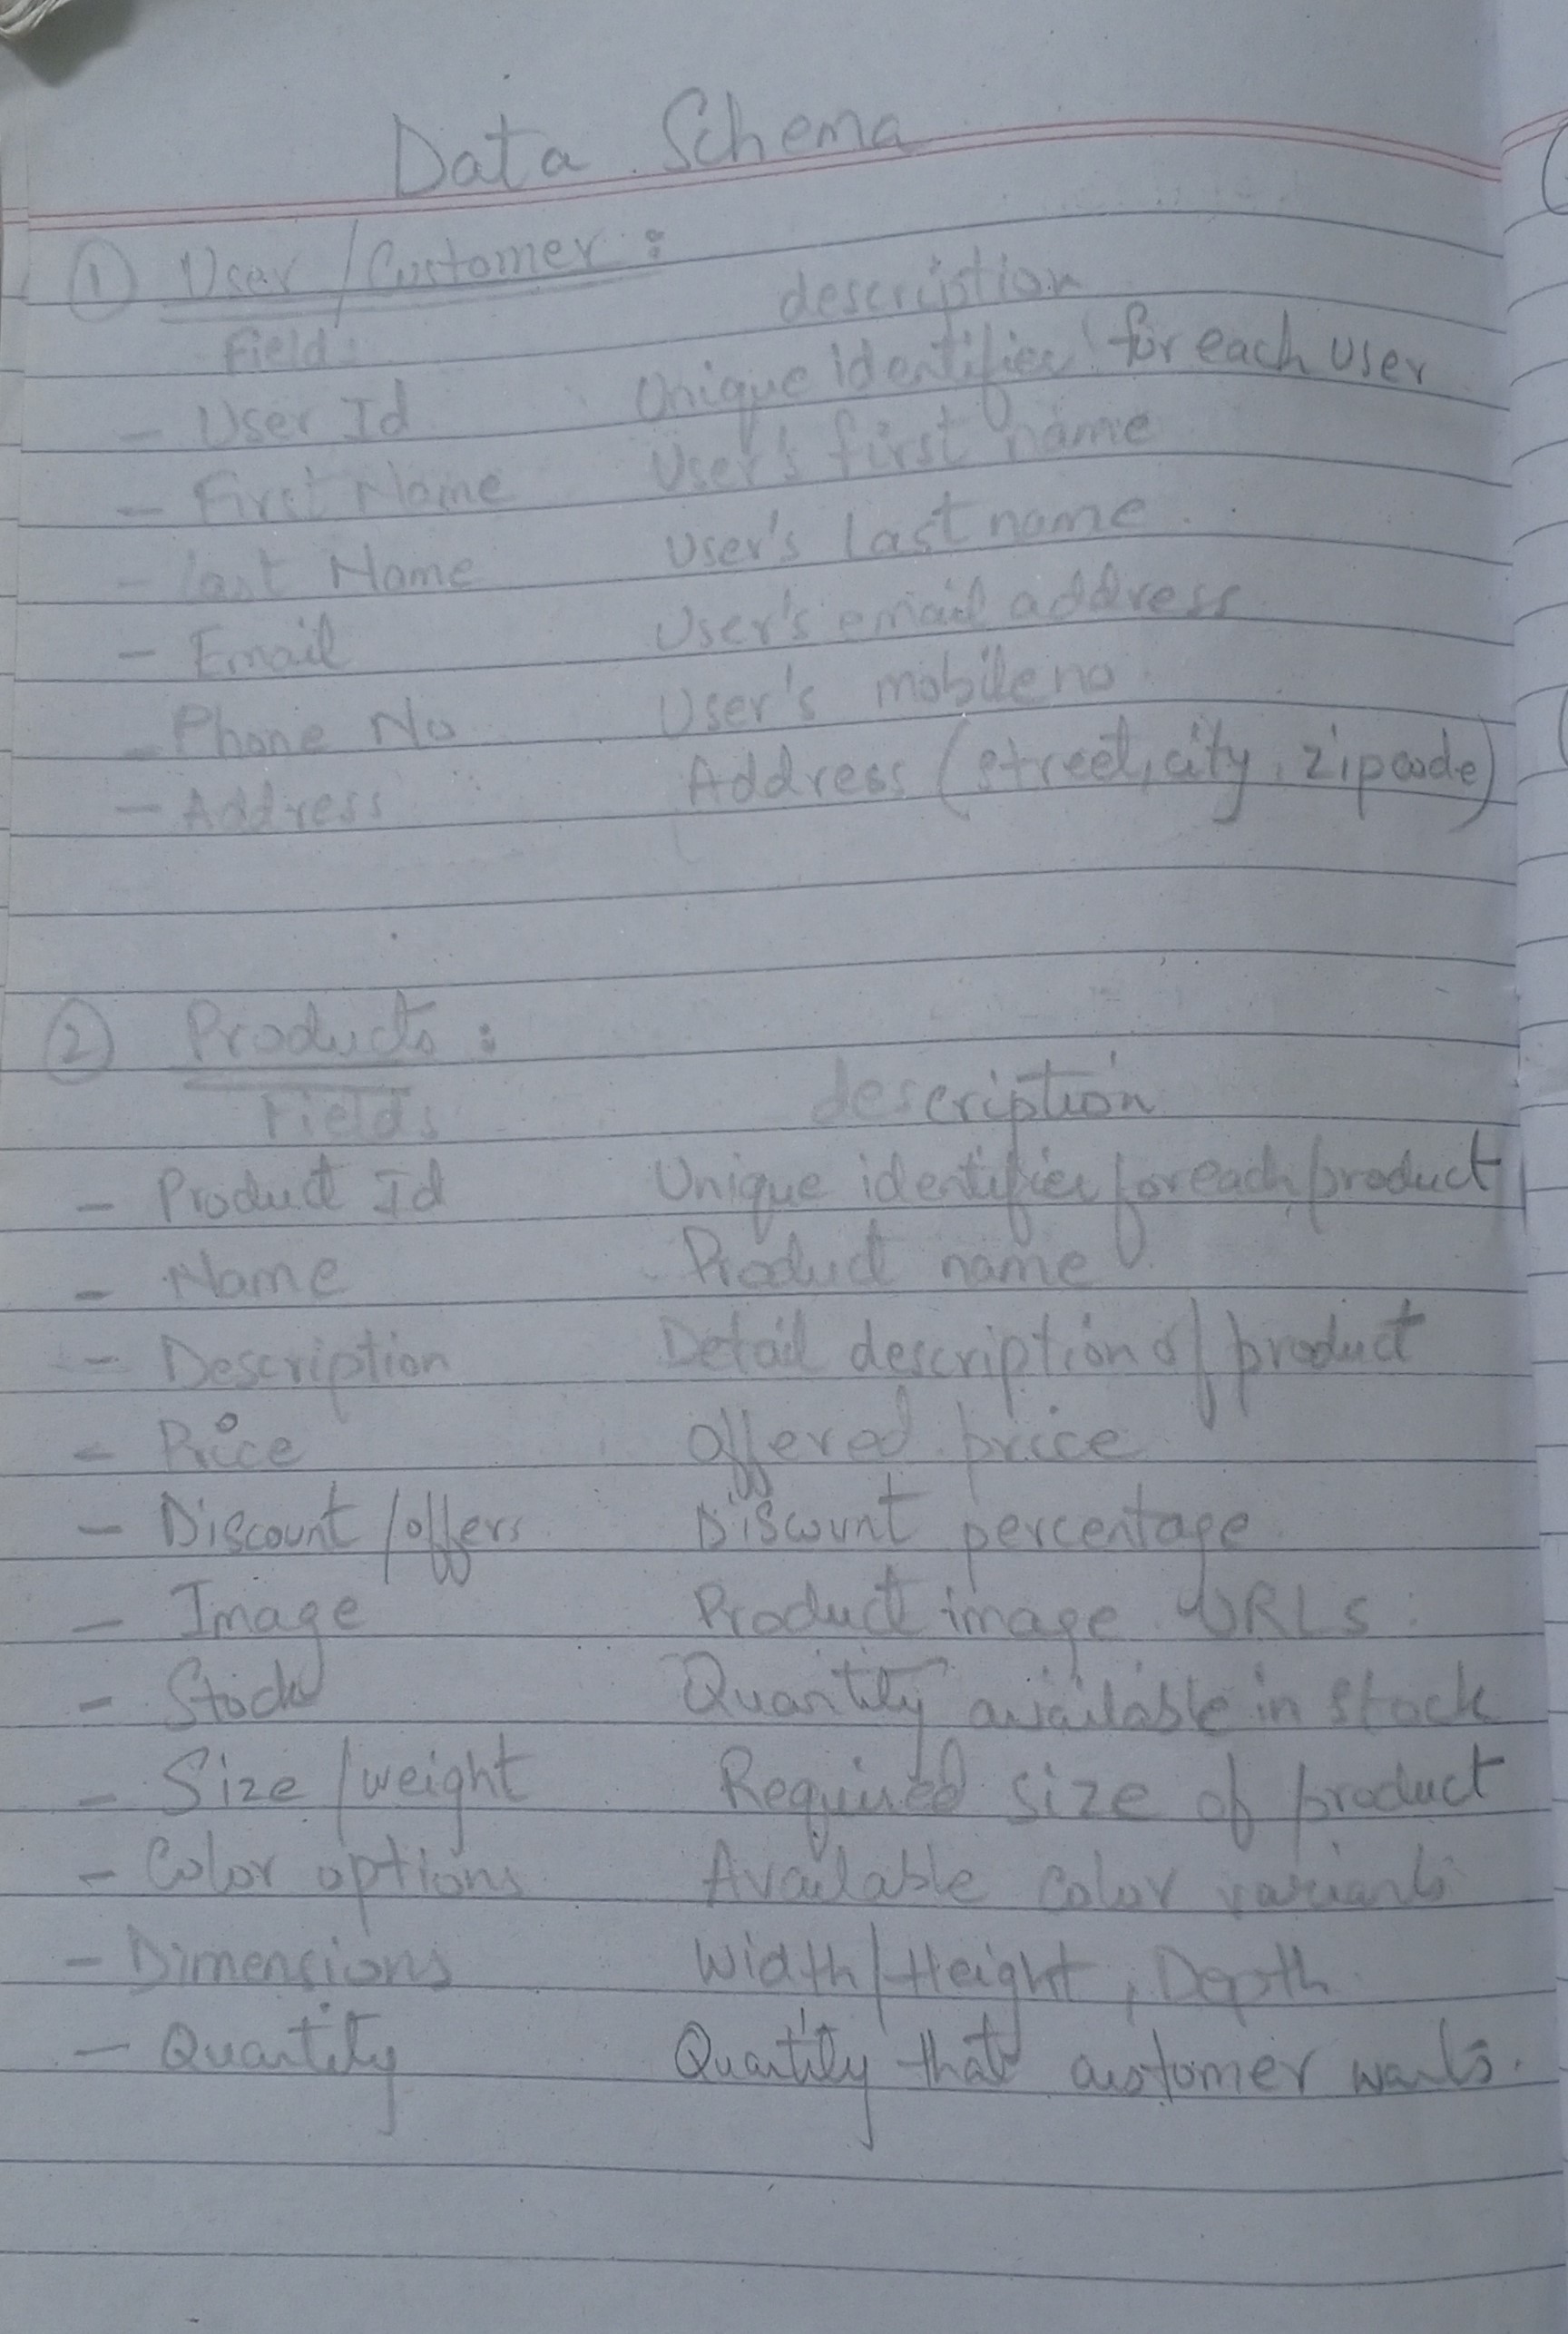 Data Schema
① User / Customer :
Field: description
- User Id Unique identifier for each user
- First Name User's first name
- last Name User's last name
- Email User's email address
- Phone No User's mobile no
- Address Address (street, city, zipcode)
② Products :
Fields description
- Product Id Unique identifier for each product
- Name Product name
- Description Detail description of product
- Price offered price
- Discount / offers Discount percentage
- Image Product image URLs
- Stock Quantity available in stock
- Size / weight Required size of product
- Color options Available color variants
- Dimensions Width / Height, Depth
- Quantity Quantity that customer wants.